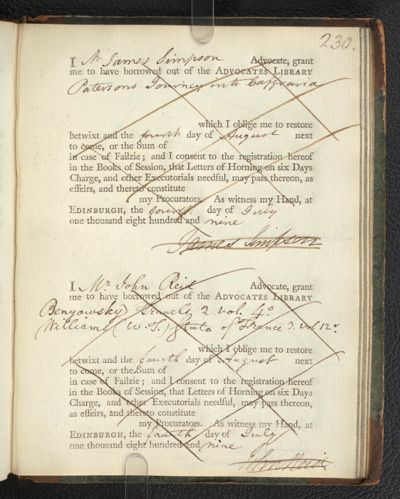 230.
I Mr James Simpson Advocate, grant
me to have borrowed out of the ADVOCATES LIBRARY
Patersons Journey into Caffraria
which I oblige me to restore
betwixt and the fourth day of August next
to come, or the Sum of
in case of Failzie; and I consent to the registration hereof
in the Books of Session, that Letters of Horning on six Days
Charge, and other Executorials needful, may pass thereon, as
effeirs, and thereto constitute
my Procurators. As witness my Hand, at
EDINBURGH, the fourth day of July
one thousand eight hundred and nine
James Simpson
I Mr John Reid Advocate, grant
me to have borrowed out of the ADVOCATES LIBRARY
Benyowsky's Travels 2 vol 4o
Williams (W. T.) State of France 2 vol 12o
which I oblige me to restore
betwixt and the fourth day of August next
to come, or the Sum of
in case of Failzie; and I consent to the registration hereof
in the Books of Session, that Letters of Horning on six Days
Charge, and other Executorials needful, may pass thereon,
as effeirs, and thereto constitute
my Procurators. As witness my Hand, at
EDINBURGH, the fourth day of July
one thousand eight hundred and nine
John Reid